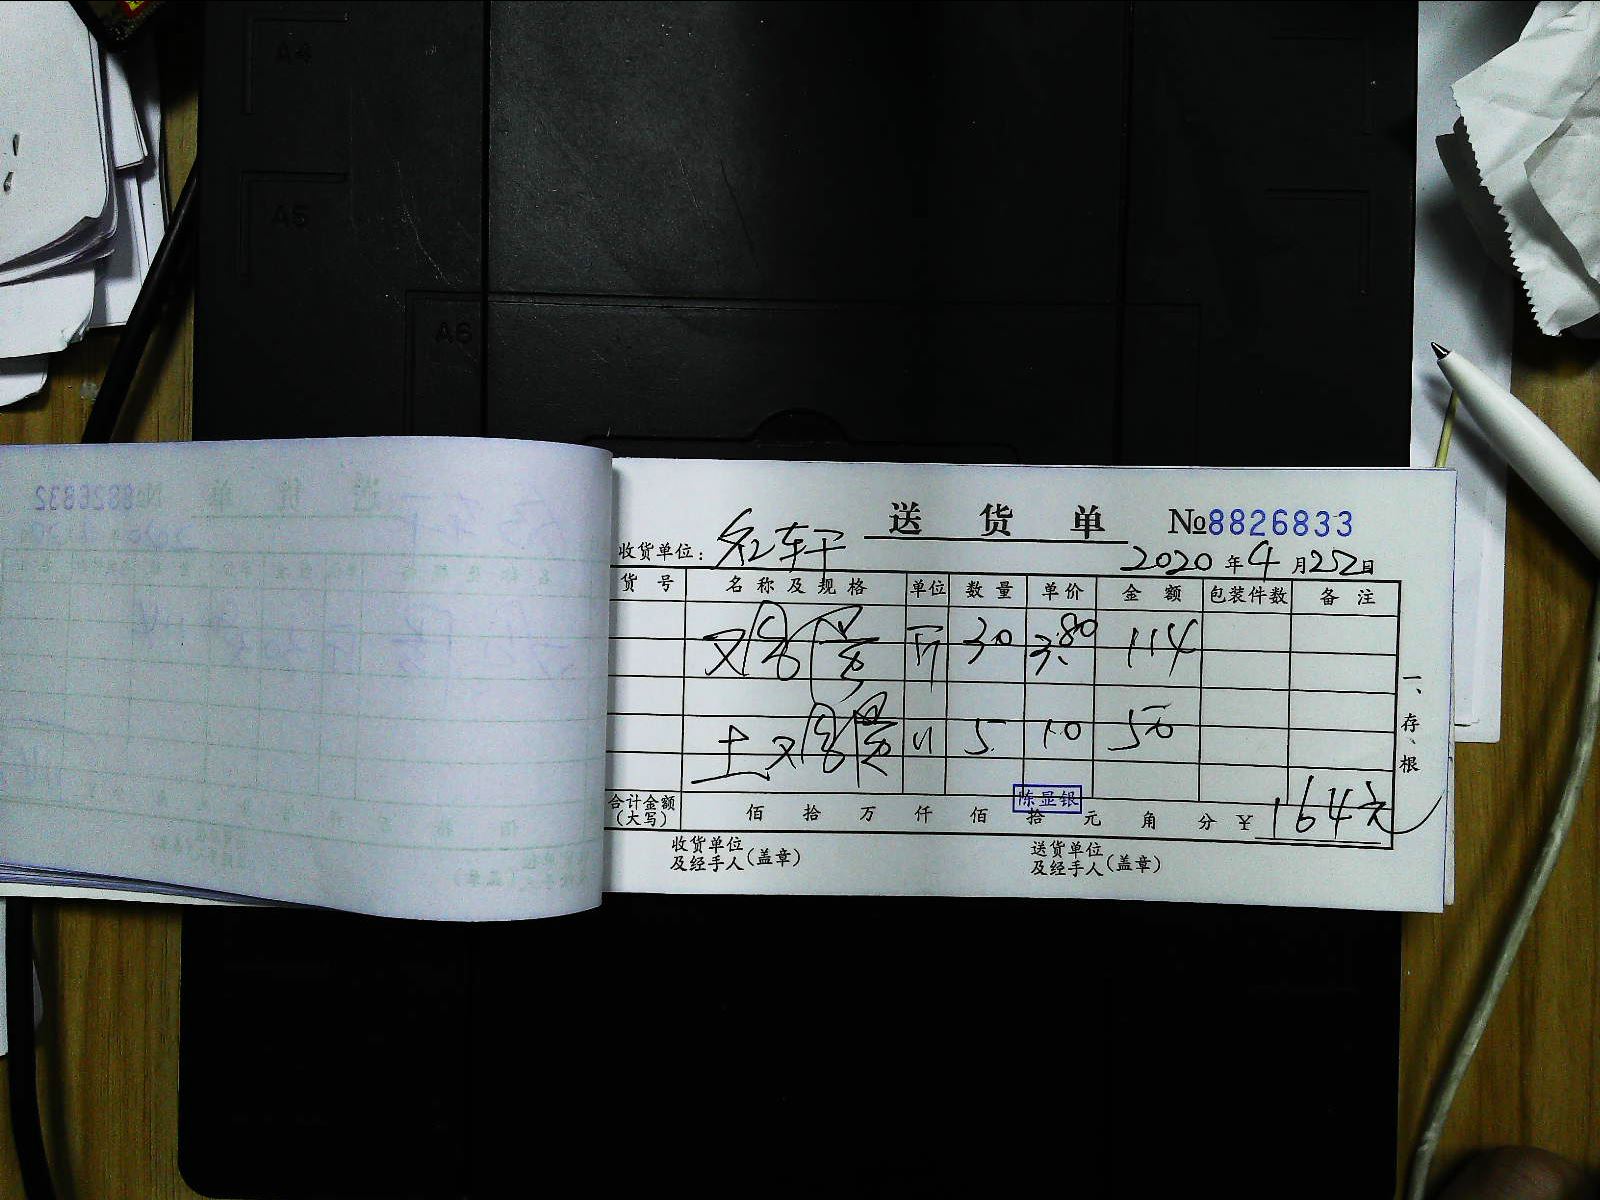 A4
A5
A6
送货单 №8826833
收货单位: 红轩 2020年4月25日
货号 名称及规格 单位 数量 单价 金额 包装件数 备注
斤 30 3.80 114
土 〃 5 10 50
一、存根
陈显银
合计金额(大写) 佰 拾 万 仟 佰 拾 元 角 分 ¥164元
收货单位及经手人(盖章) 送货单位及经手人(盖章)
8826832